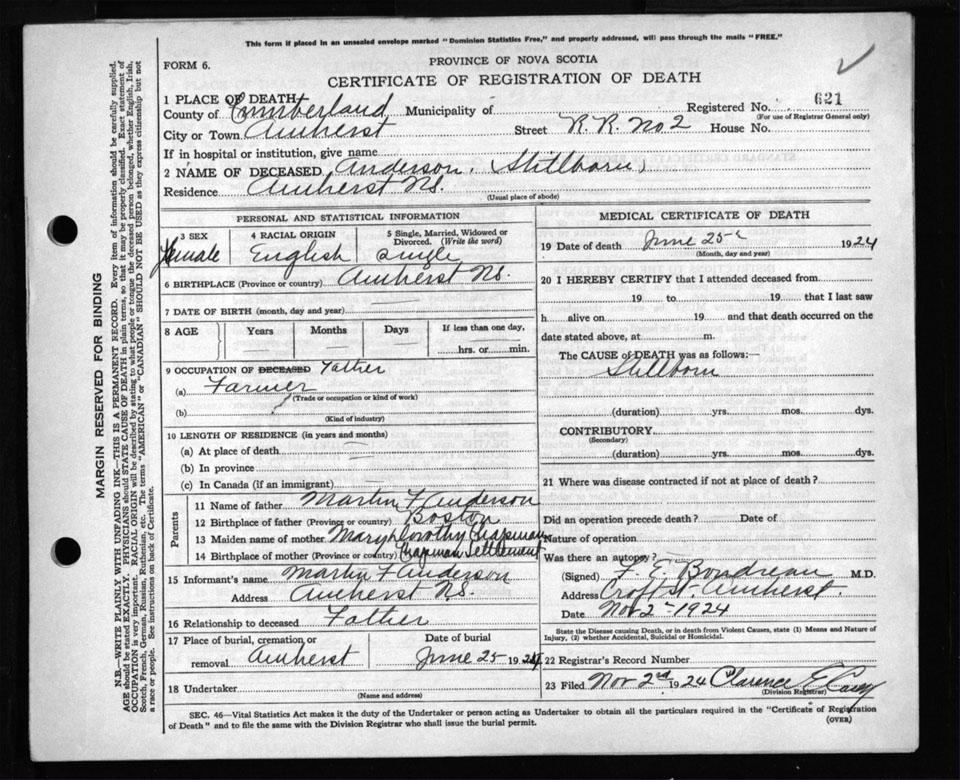 This form if placed in an unsealed envelope marked "Dominion Statistics Free," and properly addressed, will pass through the mails "FREE."
FORM 6.
PROVINCE OF NOVA SCOTIA
CERTIFICATE OF REGISTRATION OF DEATH
1 PLACE OF DEATH
County of Cumberland Municipality of Registered No. 621
(For use of Registrar General only)
City or Town Amherst Street R.R. No 2 House No.
If in hospital or institution, give name
2 NAME OF DECEASED Anderson, (Stillborn)
Residence Amherst NS.
(Usual place of abode)
PERSONAL AND STATISTICAL INFORMATION
3 SEX 4 RACIAL ORIGIN 5 Single, Married, Widowed or
Divorced. (Write the word)
Female English Single
6 BIRTHPLACE (Province or country) Amherst NS.
7 DATE OF BIRTH (month, day and year)
8 AGE Years Months Days If less than one day,
hrs. or min.
9 OCCUPATION OF DECEASED Father
(a) Farmer
(Trade or occupation or kind of work)
(b)
(Kind of industry)
10 LENGTH OF RESIDENCE (in years and months)
(a) At place of death
(b) In province
(c) In Canada (if an immigrant)
Parents
11 Name of father Martin F Anderson
12 Birthplace of father (Province or country) Boston
13 Maiden name of mother Mary Dorothy Chapman
14 Birthplace of mother (Province or country) Chapman Settlement
15 Informant's name Martin F Anderson
Address Amherst NS.
16 Relationship to deceased Father
17 Place of burial, cremation or Date of burial
removal Amherst June 25 1924
18 Undertaker
(Name and address)
MEDICAL CERTIFICATE OF DEATH
19 Date of death June 25 1924
(Month, day and year)
20 I HEREBY CERTIFY that I attended deceased from
19 to 19 that I last saw
h alive on 19 and that death occurred on the
date stated above, at m.
The CAUSE of DEATH was as follows:—
Stillborn
(duration) yrs. mos. dys.
CONTRIBUTORY
(Secondary)
(duration) yrs. mos. dys.
21 Where was disease contracted if not at place of death?
Did an operation precede death? Date of
Nature of operation
Was there an autopsy?
(Signed) F. E. Boudreau M.D.
Address Croft St. Amherst.
Date Nov 2nd 1924
State the Disease causing Death, or in death from Violent Causes, state (1) Means and Nature of
Injury, (2) whether Accidental, Suicidal or Homicidal.
22 Registrar's Record Number
23 Filed Nov 2nd 1924 Clarence E Casey
(Division Registrar)
SEC. 46—Vital Statistics Act makes it the duty of the Undertaker or person acting as Undertaker to obtain all the particulars required in the "Certificate of Registration
of Death" and to file the same with the Division Registrar who shall issue the burial permit.
(OVER)
MARGIN RESERVED FOR BINDING
N.B.—WRITE PLAINLY WITH UNFADING INK—THIS IS A PERMANENT RECORD. Every item of information should be carefully supplied.
AGE should be stated EXACTLY. PHYSICIANS should STATE CAUSE OF DEATH in plain terms, so that it may be properly classified. Exact statement of
OCCUPATION is very important. RACIAL ORIGIN will be described by stating to what people or tongue the deceased person belonged, whether English, Irish,
Scotch, French, German, Russian, Ruthenian, etc. The terms "AMERICAN" or "CANADIAN" SHOULD NOT BE USED as they express citizenship but not
a race or people. See instructions on back of Certificate.